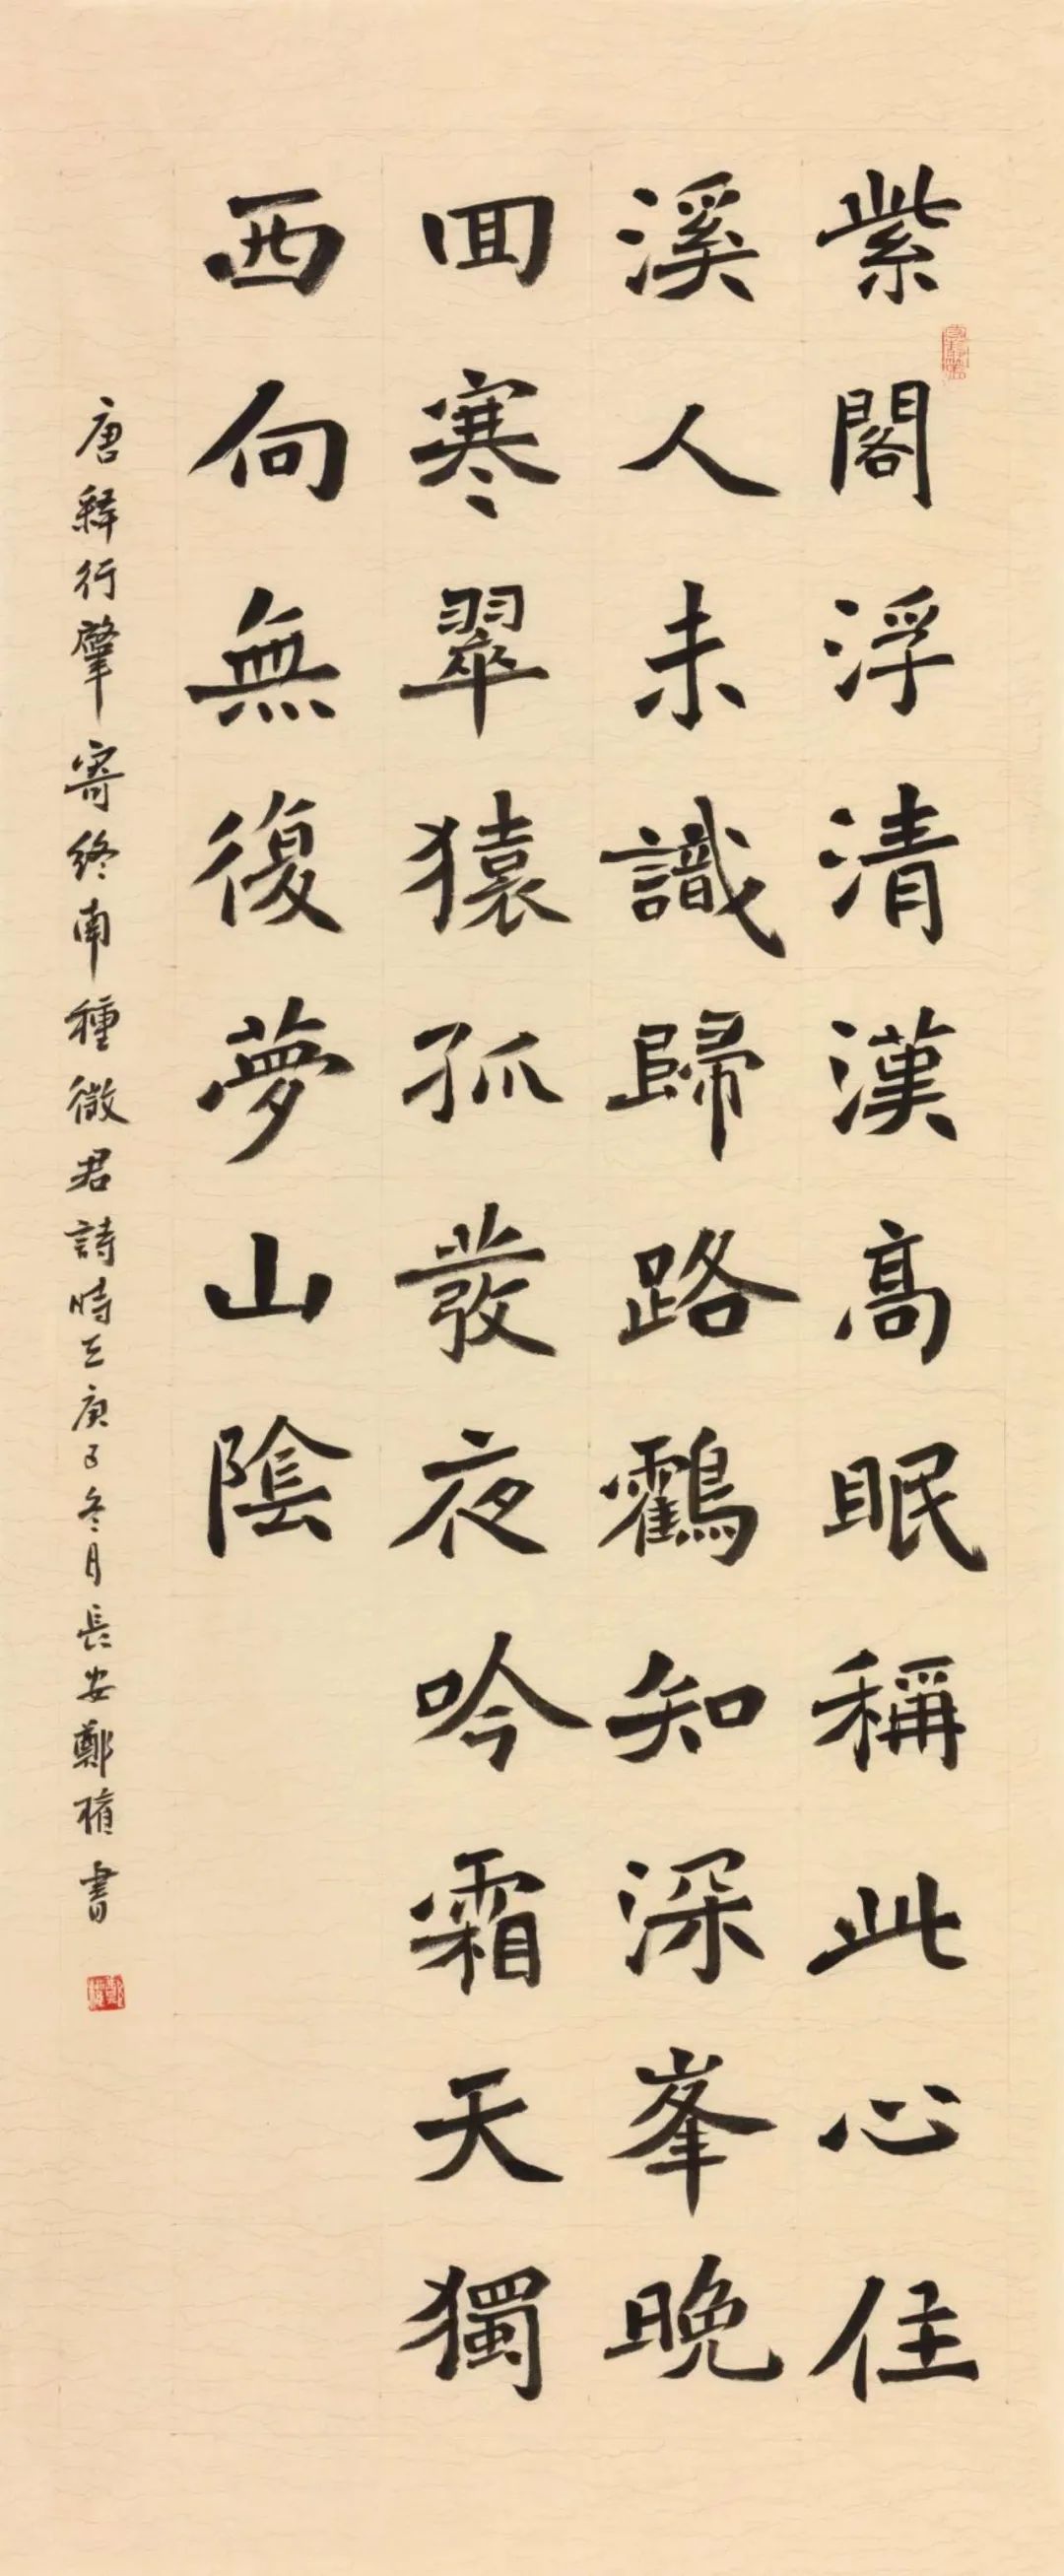 紫閣浮清漢髙眠稱此心住
溪人未識歸路鸖知深峯晚
回寒翠猿孤發夜吟霜天獨
西向無復夢山陰
唐釋行肇寄終南種徵君詩時在庚子冬月長安鄭書